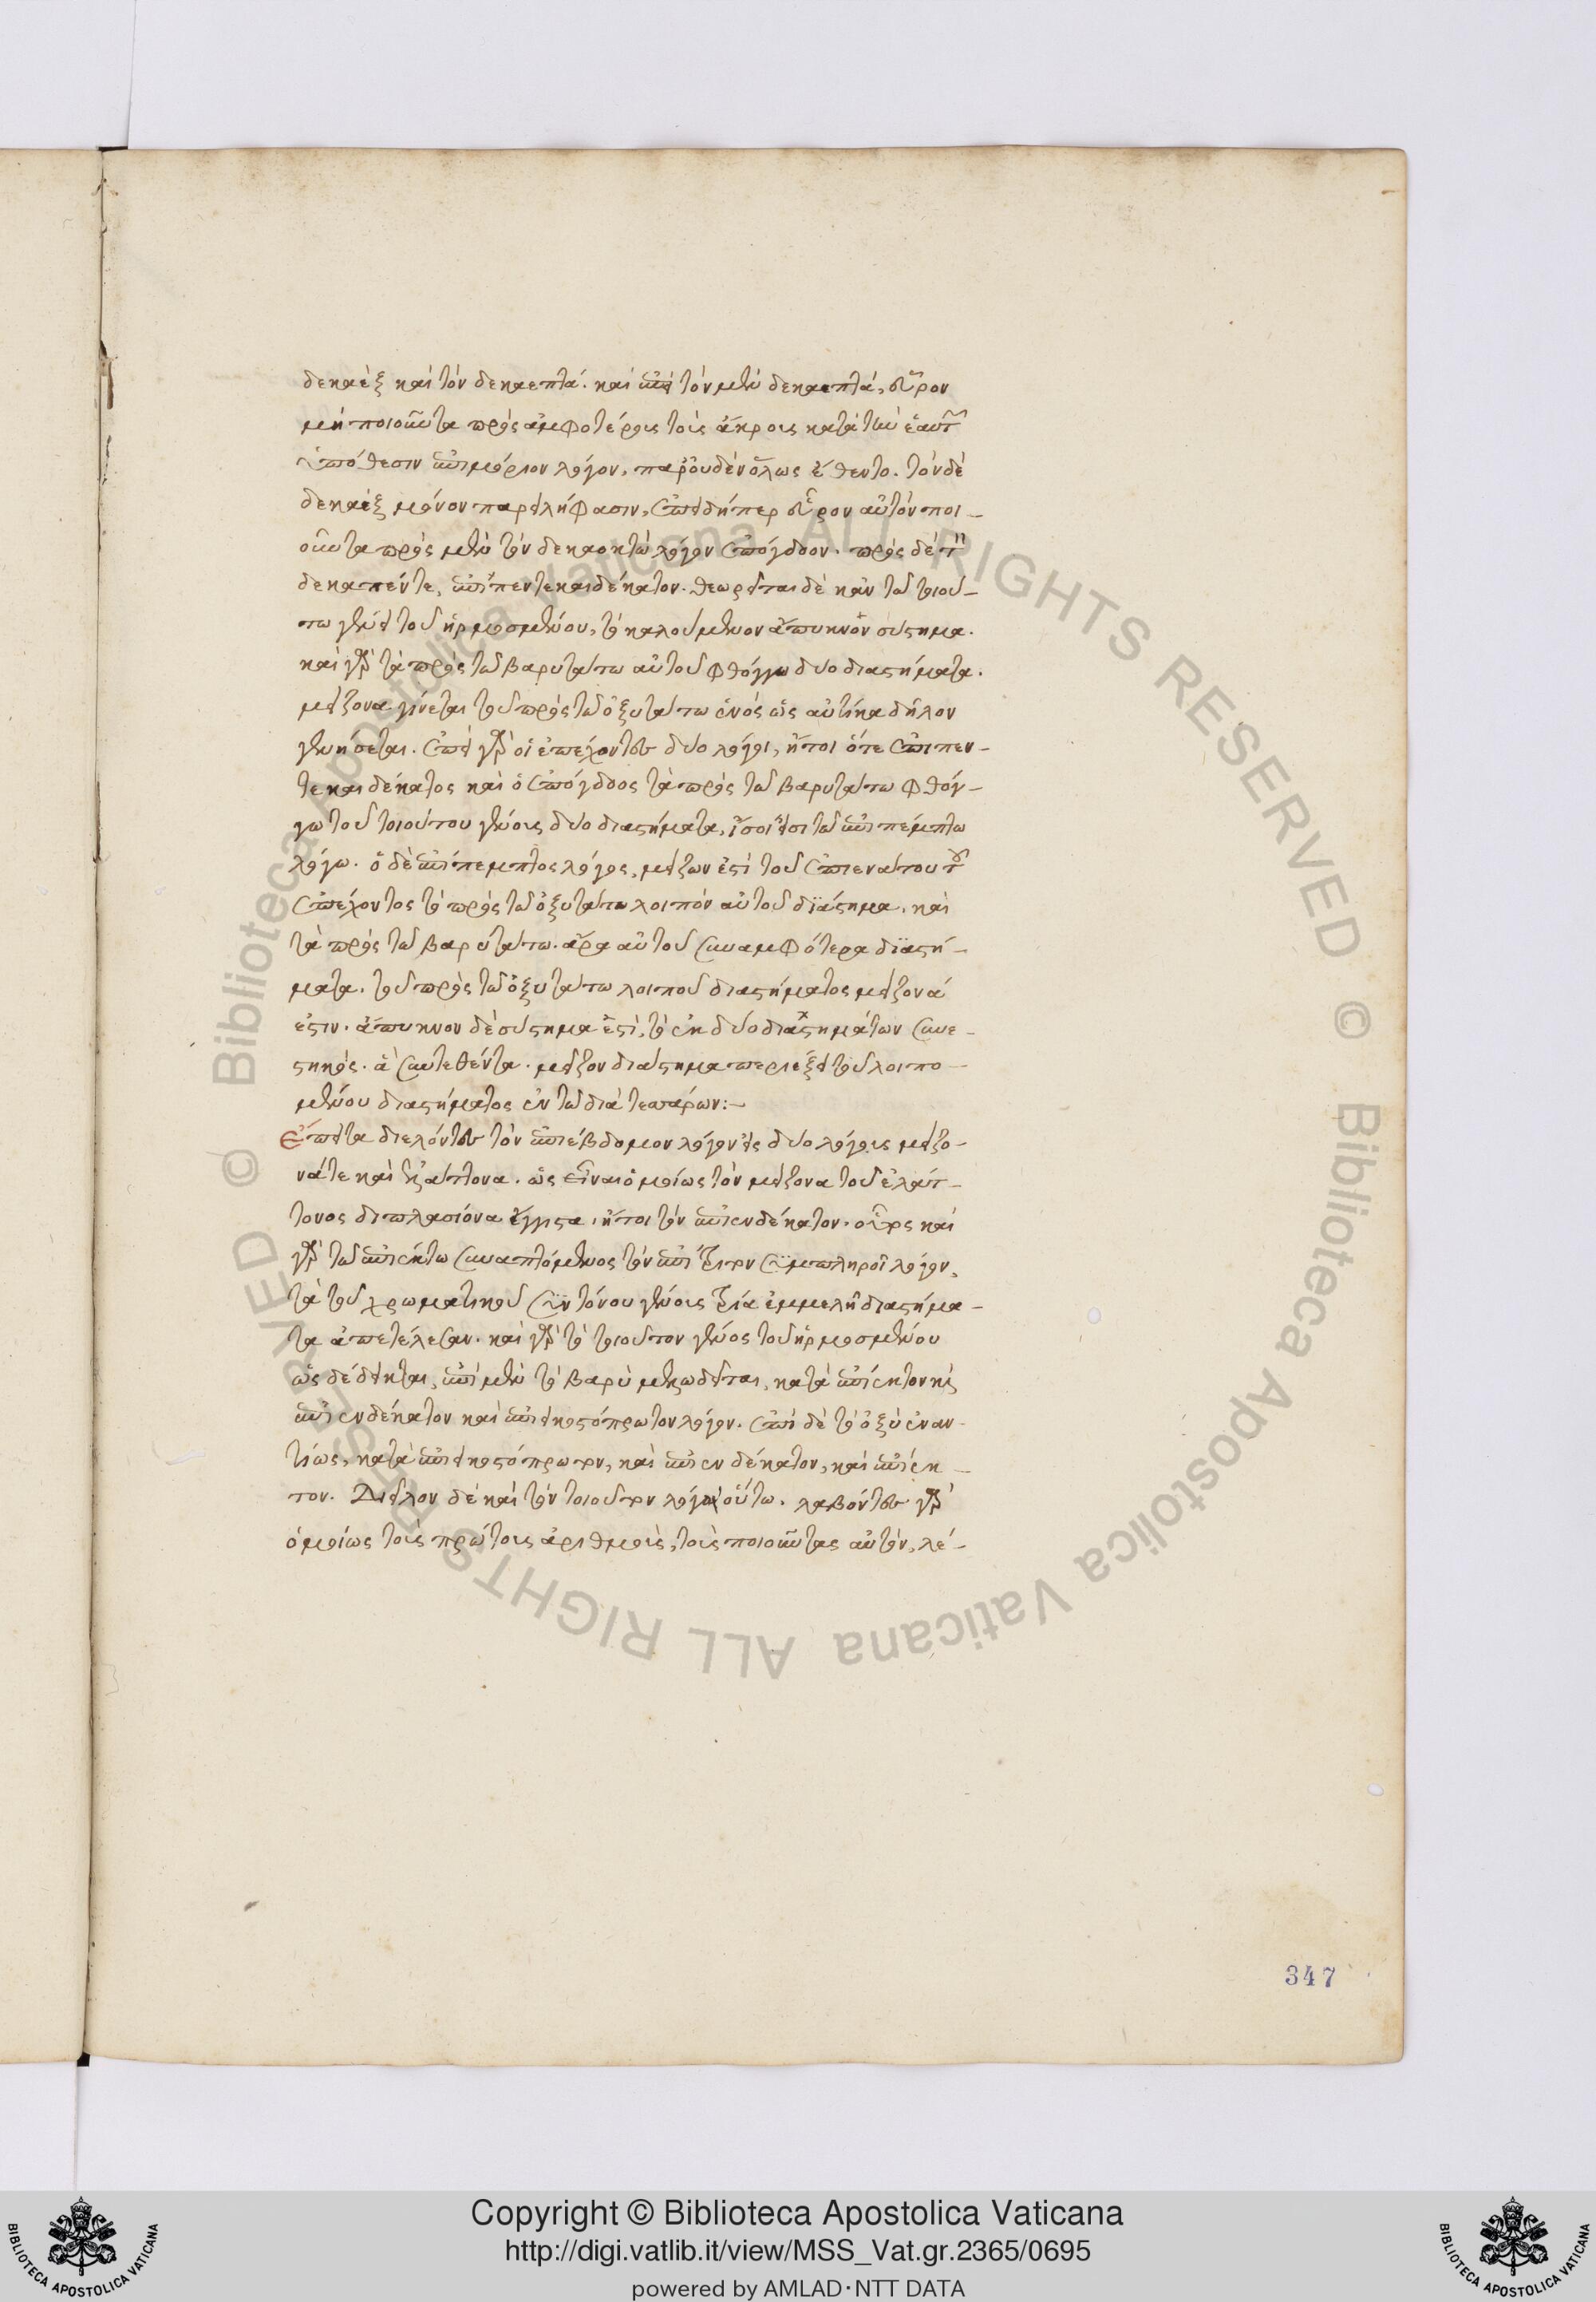 δεκαὲξ καὶ τὸν δεκαεπτά. καὶ ἐπεὶ τὸν μὲν δεκαεπτά, εὗρον
μὴ ποιοῦντα πρὸς ἀμφοτέρους τοὺς ἄκρους κατὰ τὴν ἑαυτῶν
ὑπόθεσιν ἐπιμόριον λόγον, παρ' οὐδὲν ὅλως ἔθεντο. τὸν δὲ
δεκαὲξ μόνον παρειλήφασιν, ἐπειδήπερ εὗρον αὐτὸν ποι-
οῦντα πρὸς μὲν τὸν δεκαοκτὼ λόγον ἐπόγδοον. πρὸς δὲ τὸν
δεκαπέντε, ἐπιπεντεκαιδέκατον. θεωρεῖται δὲ κἂν τῷ τοιού-
τω γένει τοῦ ἡρμοσμένου, τὸ καλούμενον ἄπυκνον σύστημα.
καὶ γὰρ τὰ πρὸς τῷ βαρυτάτω αὐτοῦ φθόγγω δύο διαστήματα.
μείζονα γίνεται τοῦ πρὸς τῷ ὀξυτάτω ἑνὸς ὡς αὐτίκα δῆλον
γενήσεται. ἐπεὶ γὰρ οἱ ἐπέχοντες δύο λόγοι, ἤτοι ὅτε ἐπιπεν-
τεκαιδέκατος καὶ ὁ ἐπόγδοος τὰ πρὸς τῷ βαρυτάτω φθόγ-
γω τοῦ τοιούτου γένους δύο διαστήματα, ἴσοι εἰσὶ τῷ ἐπιπέμπτω
λόγω. ὁ δὲ ἐπίπεμπτος λόγος, μείζων ἐστὶ τοῦ ἐπιενάτου τοῦ
ἐπέχοντος τὸ πρὸς τῷ ὀξυτάτω λοιπὸν αὐτοῦ διάστημα, καὶ
τὰ πρὸς τῷ βαρυτάτω. ἄρα αὐτοῦ συναμφότερα διαστή-
ματα. τοῦ πρὸς τῷ ὀξυτάτω λοιποῦ διαστήματος μείζονά
ἐστιν. ἄπυκνον δὲ σύστημα ἐστὶ, τὸ ἐκ δύο διαστημάτων συνε-
στηκός. ἃ συντεθέντα. μεῖζον διάστημα περιέξει τοῦ λοιπο-
μένου διαστήματος ἐν τῷ διὰ τεσσάρων:–
Ἔπειτα διελόντες τὸν ἐπιέβδομον λόγον εἰς δύο λόγους μείζο-
νά τε καὶ ἐλάττονα. ὡς εἶναι ὁμοίως τὸν μείζονα τοῦ ἐλάτ-
τονος διπλασίονα ἔγγιστα, ἤτοι τὸν ἐπιενδέκατον. οὗτος καὶ
γὰρ τῷ ἐπιέκτω συναπτόμενος τὸν ἐπίτριτον συμπληροῖ λόγον,
τὰ τοῦ χρωματικοῦ συντόνου γένους τρία ἐμμελῆ διαστήμα-
τα ἀπετέλεσαν. καὶ γὰρ τὸ τοιοῦτον γένος τοῦ ἡρμοσμένου
ὡς δέδεικται, ἐπὶ μὲν τὸ βαρὺ μελωδεῖται, κατὰ ἐπίεκτον καὶ
ἐπιενδέκατον καὶ ἐπιεικοστόπρωτον λόγον. ἐπὶ δὲ τὸ ὀξὺ ἐναν-
τίως, κατὰ ἐπιεικοστόπρωτον, καὶ ἐπιενδέκατον, καὶ ἐπίεκ-
τον. Διεῖλον δὲ καὶ τὸν τοιοῦτον λόγον οὕτω. λαβόντες γὰρ
ὁμοίως τοὺς πρώτους ἀριθμοὺς, τοὺς ποιοῦντας αὐτὸν, λέ-
347
Copyright © Biblioteca Apostolica Vaticana
http://digi.vatlib.it/view/MSS_Vat.gr.2365/0695
powered by AMLAD·NTT DATA